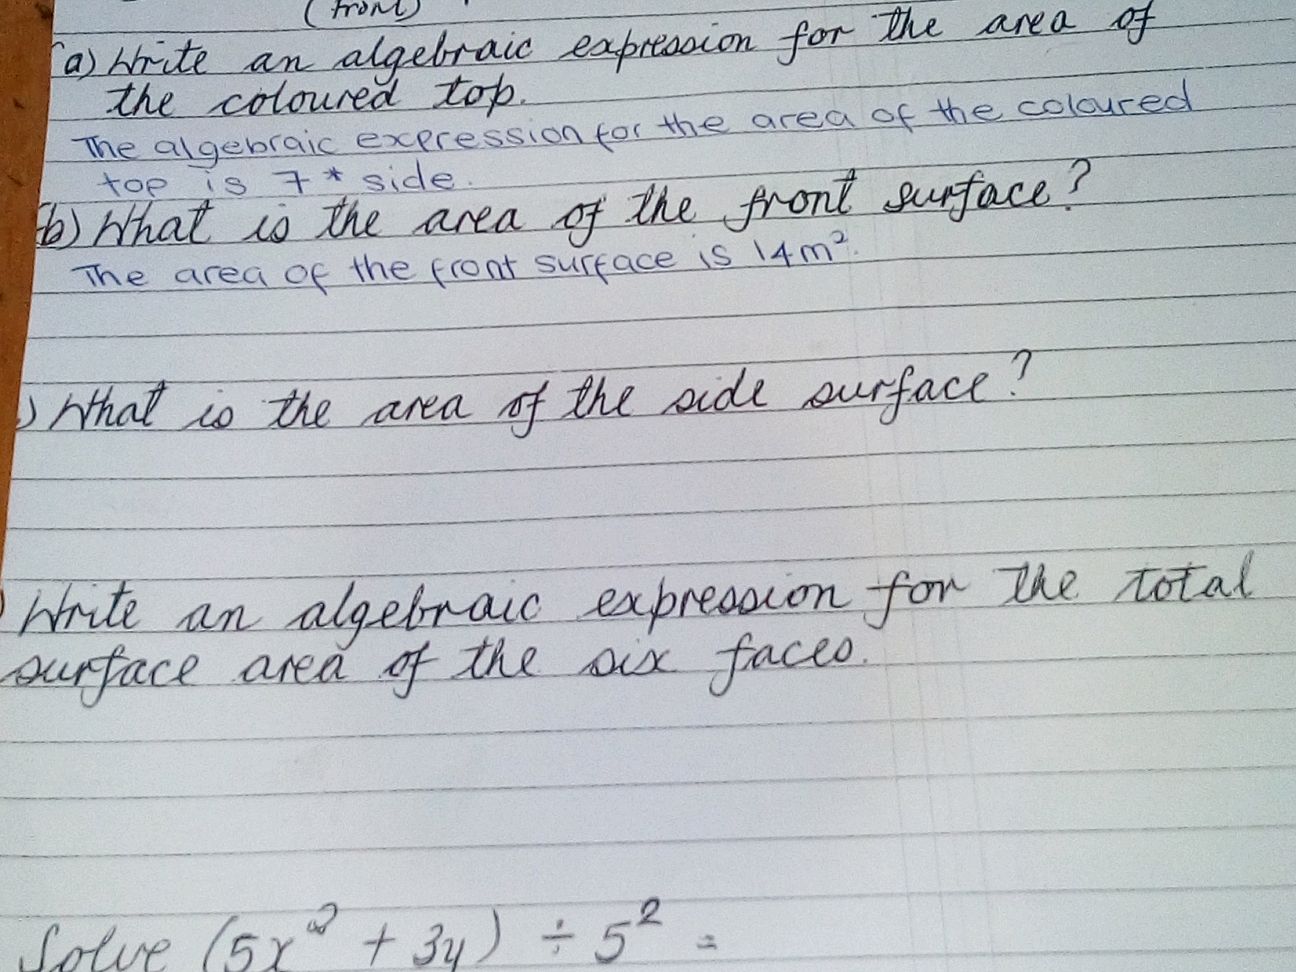 (front)
(a) Write an algebraic expression for the area of
the coloured top.
The algebraic expression for the area of the coloured
top is 7 * side.
(b) What is the area of the front surface?
The area of the front surface is 14m².
) What is the area of the side surface?
) Write an algebraic expression for the total
surface area of the six faces.
Solve (5x² + 3y) ÷ 5² =